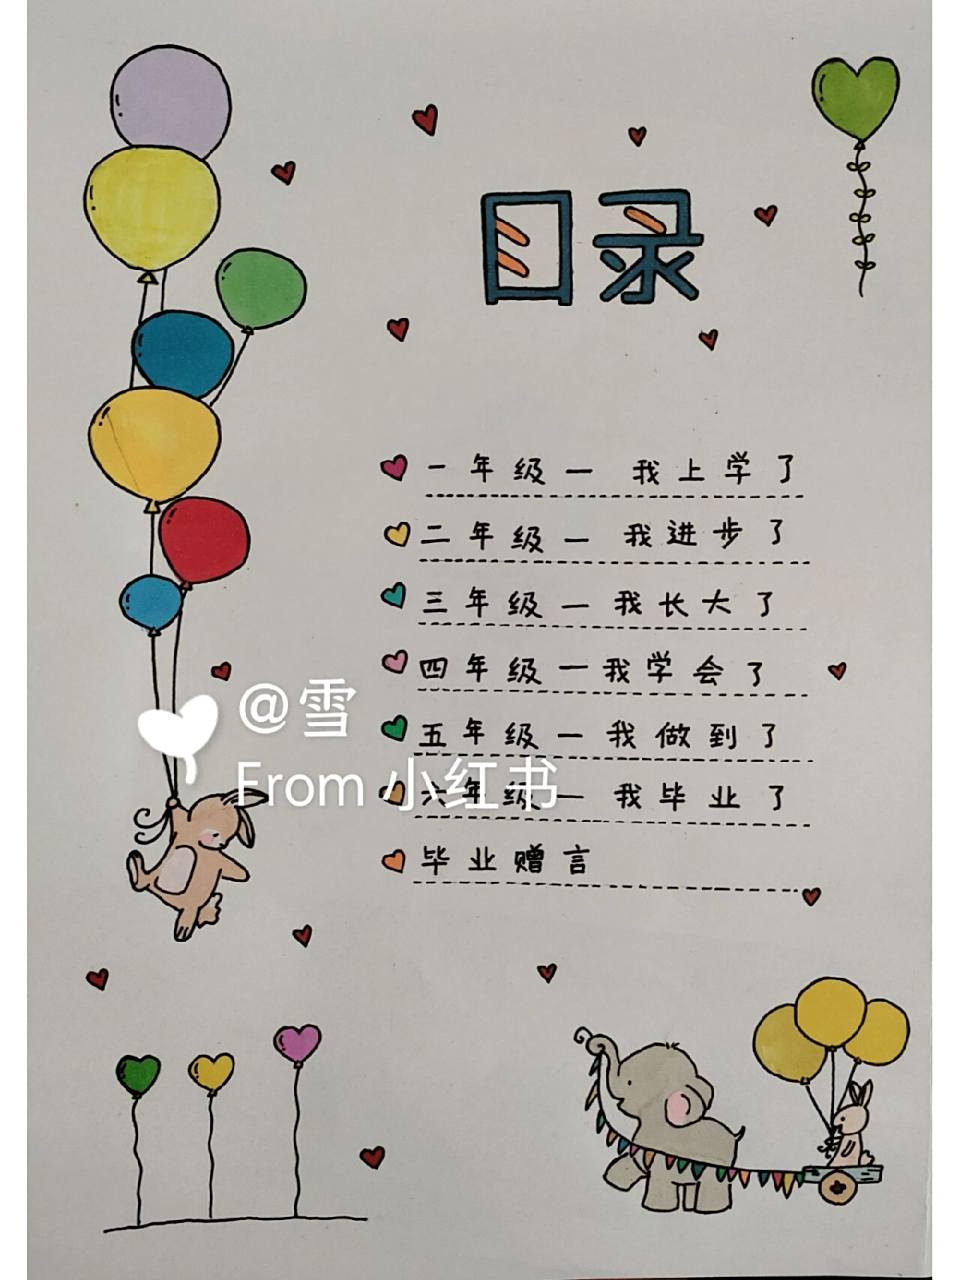 目录
一年级一 我上学了
二年级一 我进步了
三年级一我长大了
四年级一我学会了
五年级一我做到了
@雪
From 小红书
六年级一 我毕业了
毕业赠言